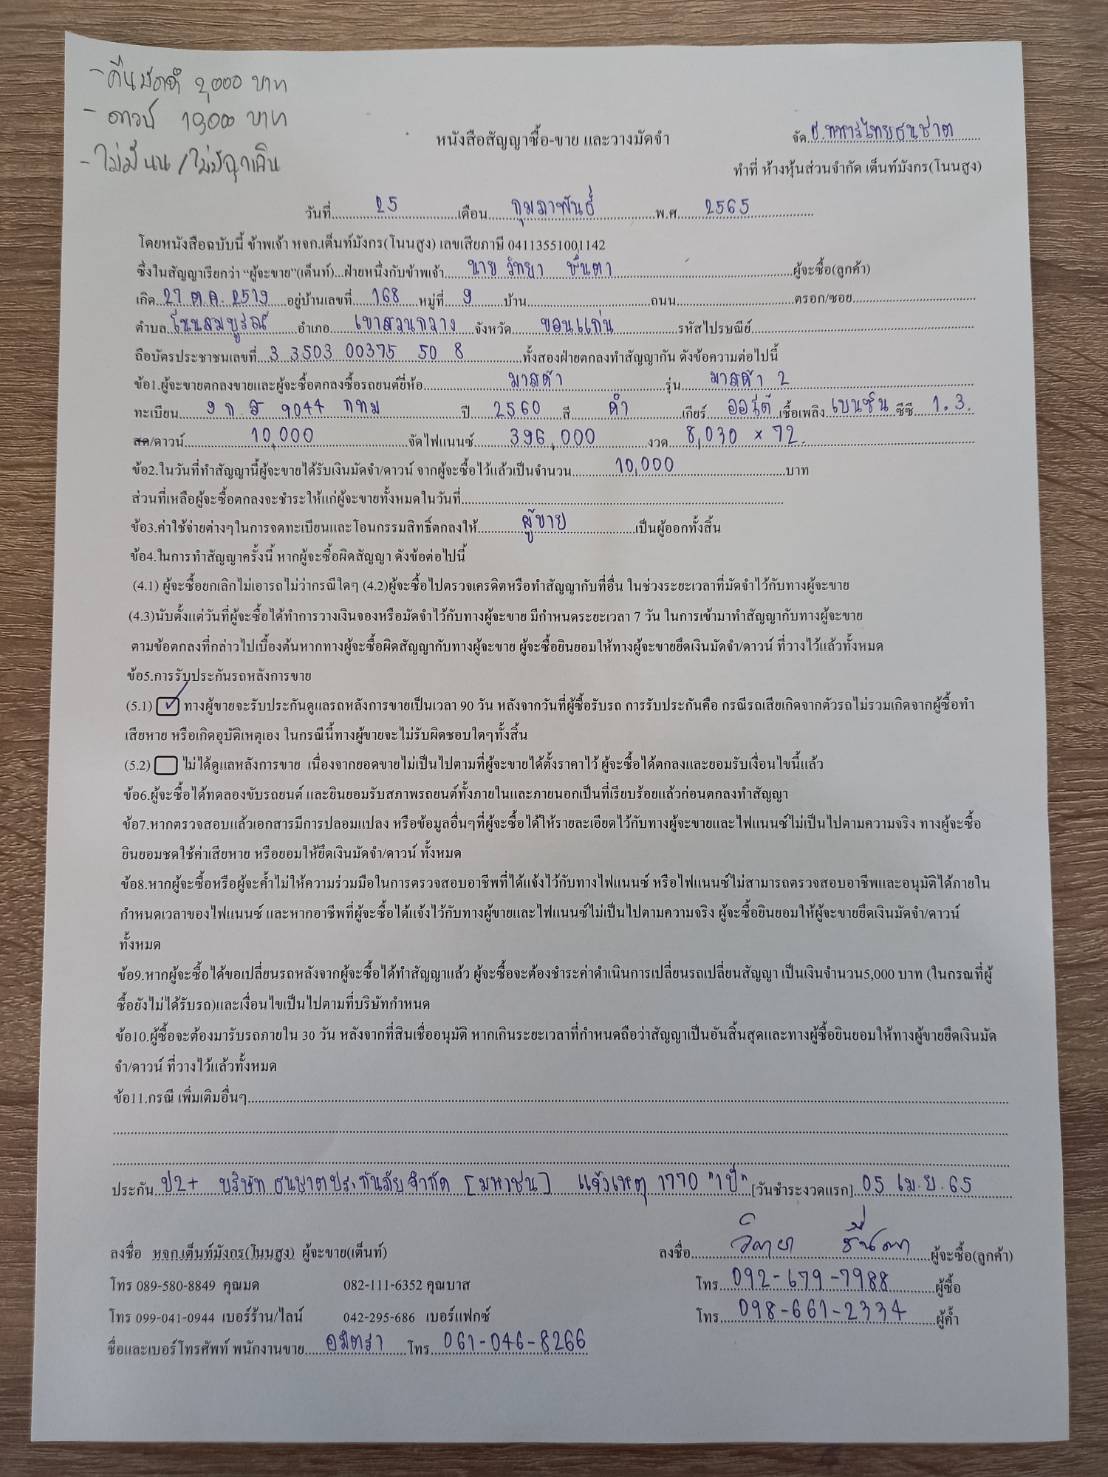 - คืนมัดจำ 2,000 บาท
- ดาวน์ 10,000 บาท
- ไม่มี นน /
หนังสือสัญญาซื้อ-ขาย และวางมัดจำ
จัด ธ.ทหารไทยธนชาต
ทำที่ ห้างหุ้นส่วนจำกัด เต็นท์มังกร(โนนสูง)
วันที่ 25 เดือน กุมภาพันธ์ พ.ศ. 2565
โดยหนังสือฉบับนี้ ข้าพเจ้า หจก.เต็นท์มังกร(โนนสูง) เลขเสียภาษี 04113551001142
ซึ่งในสัญญาเรียกว่า "ผู้จะขาย"(เต็นท์)...ฝ่ายหนึ่งกับข้าพเจ้า นาย วิทยา ชื่นตา ผู้จะซื้อ(ลูกค้า)
เกิด 27 ต.ค. 2519 อยู่บ้านเลขที่ 168 หมู่ที่ 9 บ้าน ถนน ตรอก/ซอย
ตำบล โนนสมบูรณ์ อำเภอ เขาสวนกวาง จังหวัด ขอนแก่น รหัสไปรษณีย์
ถือบัตรประชาชนเลขที่ 3 3503 00375 50 8 ทั้งสองฝ่ายตกลงทำสัญญากัน ดังข้อความต่อไปนี้
ข้อ1.ผู้จะขายตกลงขายและผู้จะซื้อตกลงซื้อรถยนต์ยี่ห้อ มาสด้า รุ่น มาสด้า 2
ทะเบียน 9044 กทม ปี 2560 สี ดำ เกียร์ ออโต้ เชื้อเพลิง เบนซิน ซีซี 1.3
สด/ดาวน์ 10,000 จัดไฟแนนซ์ 396,000 งวด 8,030 × 72.
ข้อ2.ในวันที่ทำสัญญานี้ผู้จะขายได้รับเงินมัดจำ/ดาวน์ จากผู้จะซื้อไว้แล้วเป็นจำนวน 10,000 บาท
ส่วนที่เหลือผู้จะซื้อตกลงจะชำระให้แก่ผู้จะขายทั้งหมดในวันที่
ข้อ3.ค่าใช้จ่ายต่างๆในการจดทะเบียนและโอนกรรมสิทธิ์ตกลงให้ ผู้ขาย เป็นผู้ออกทั้งสิ้น
ข้อ4.ในการทำสัญญาครั้งนี้ หากผู้จะซื้อผิดสัญญา ดังข้อต่อไปนี้
(4.1) ผู้จะซื้อยกเลิกไม่เอารถ ไม่ว่ากรณีใดๆ (4.2)ผู้จะซื้อไปตรวจเครดิตหรือทำสัญญากับที่อื่น ในช่วงระยะเวลาที่มัดจำไว้กับทางผู้จะขาย
(4.3)นับตั้งแต่วันที่ผู้จะซื้อ ได้ทำการวางเงินจองหรือมัดจำไว้กับทางผู้จะขาย มีกำหนดระยะเวลา 7 วัน ในการเข้ามาทำสัญญากับทางผู้จะขาย
ตามข้อตกลงที่กล่าวไปเบื้องต้นหากทางผู้จะซื้อผิดสัญญากับทางผู้จะขาย ผู้จะซื้อยินยอมให้ทางผู้จะขายยึดเงินมัดจำ/ดาวน์ ที่วางไว้แล้วทั้งหมด
ข้อ5.การรับประกันรถหลังการขาย
(5.1) ทางผู้ขายจะรับประกันดูแลรถหลังการขายเป็นเวลา 90 วัน หลังจากวันที่ผู้ซื้อรับรถ การรับประกันคือ กรณีรถเสียเกิดจากตัวรถไม่รวมเกิดจากผู้ซื้อทำ
เสียหาย หรือเกิดอุบัติเหตุเอง ในกรณีนี้ทางผู้ขายจะไม่รับผิดชอบใดๆทั้งสิ้น
(5.2) ไม่ได้ดูแลหลังการขาย เนื่องจากยอดขายไม่เป็นไปตามที่ผู้จะขายได้ตั้งราคาไว้ ผู้จะซื้อได้ตกลงและยอมรับเงื่อนไขนี้แล้ว
ข้อ6.ผู้จะซื้อได้ทดลองขับรถยนต์ และยินยอมรับสภาพรถยนต์ทั้งภายในและภายนอกเป็นที่เรียบร้อยแล้วก่อนตกลงทำสัญญา
ข้อ7.หากตรวจสอบแล้วเอกสารมีการปลอมแปลง หรือข้อมูลอื่นๆที่ผู้จะซื้อได้ให้รายละเอียดไว้กับทางผู้จะขายและไฟแนนซ์ไม่เป็นไปตามความจริง ทางผู้จะซื้อ
ยินยอมชดใช้ค่าเสียหาย หรือยอมให้ยึดเงินมัดจำ/ดาวน์ ทั้งหมด
ข้อ8.หากผู้จะซื้อหรือผู้จะค้ำไม่ให้ความร่วมมือในการตรวจสอบอาชีพที่ได้แจ้งไว้กับทางไฟแนนซ์ หรือไฟแนนซ์ไม่สามารถตรวจสอบอาชีพและอนุมัติได้ภายใน
กำหนดเวลาของไฟแนนซ์ และหากอาชีพที่ผู้จะซื้อได้แจ้งไว้กับทางผู้ขายและไฟแนนซ์ไม่เป็นไปตามความจริง ผู้จะซื้อยินยอมให้ผู้จะขายยึดเงินมัดจำ/ดาวน์
ทั้งหมด
ข้อ9.หากผู้จะซื้อได้ขอเปลี่ยนรถหลังจากผู้จะซื้อได้ทำสัญญาแล้ว ผู้จะซื้อจะต้องชำระค่าดำเนินการเปลี่ยนรถเปลี่ยนสัญญา เป็นเงินจำนวน5,000 บาท (ในกรณที่ผู้
ซื้อยังไม่ได้รับรถ)และเงื่อนไขเป็นไปตามที่บริษัทกำหนด
ข้อ10.ผู้ซื้อจะต้องมารับรถภายใน 30 วัน หลังจากที่สินเชื่ออนุมัติ หากเกินระยะเวลาที่กำหนดถือว่าสัญญาเป็นอันสิ้นสุดและทางผู้ซื้อยินยอมให้ทางผู้ขายยึดเงินมัด
จำ/ดาวน์ ที่วางไว้แล้วทั้งหมด
ข้อ11.กรณี เพิ่มเติมอื่นๆ
ประกัน ป2+ บริษัท ธนชาตประกันภัยจำกัด [มหาชน] แจ้งเหตุ 1770 "1ปี" [วันชำระงวดแรก] 05 เม.ย.65
ลงชื่อ หจก.เต็นท์มังกร(โนนสูง) ผู้จะขาย(เต็นท์) ลงชื่อ วิทยา ชื่นตา ผู้จะซื้อ(ลูกค้า)
โทร 089-580-8849 คุณมด 082-111-6352 คุณบาส โทร 092-679-7988 ผู้ซื้อ
โทร 099-041-0944 เบอร์ร้าน/ไลน์ 042-295-686 เบอร์แฟกซ์ โทร 098-661-2334 ผู้ค้ำ
ชื่อและเบอร์โทรศัพท์ พนักงานขาย อมิตรา โทร 061-046-8266